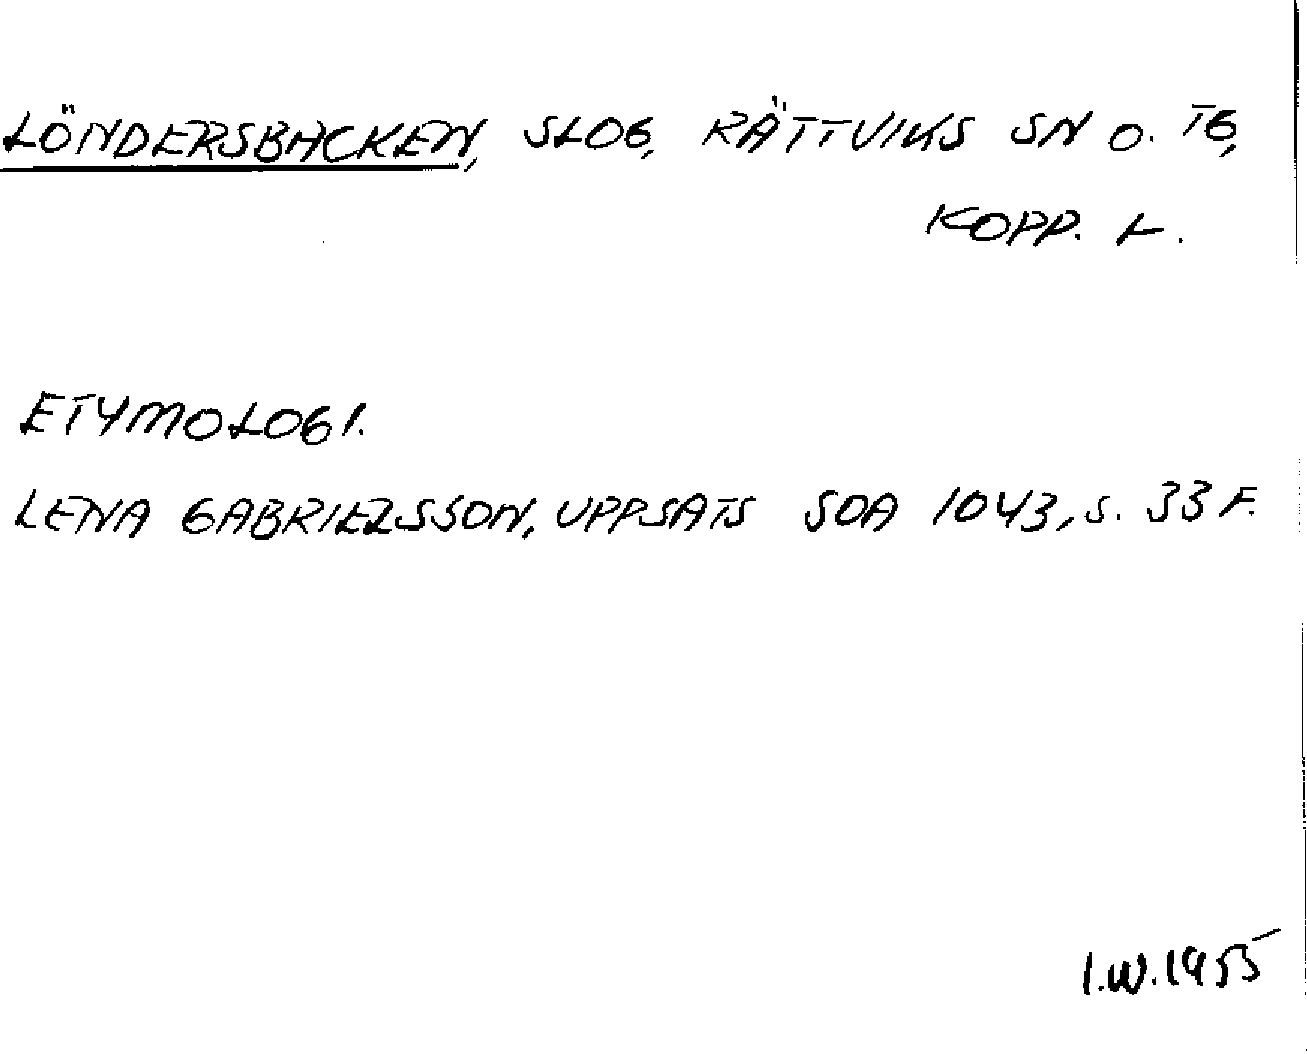 LÖNDERSBACKEN, SLOG, RÄTTVIKS SN O. TG,
KOPP. L.
ETYMOLOGI.
LENA GABRIELSSON, UPPSATS SOA 1043, S. 33 F.
I.W. 1955